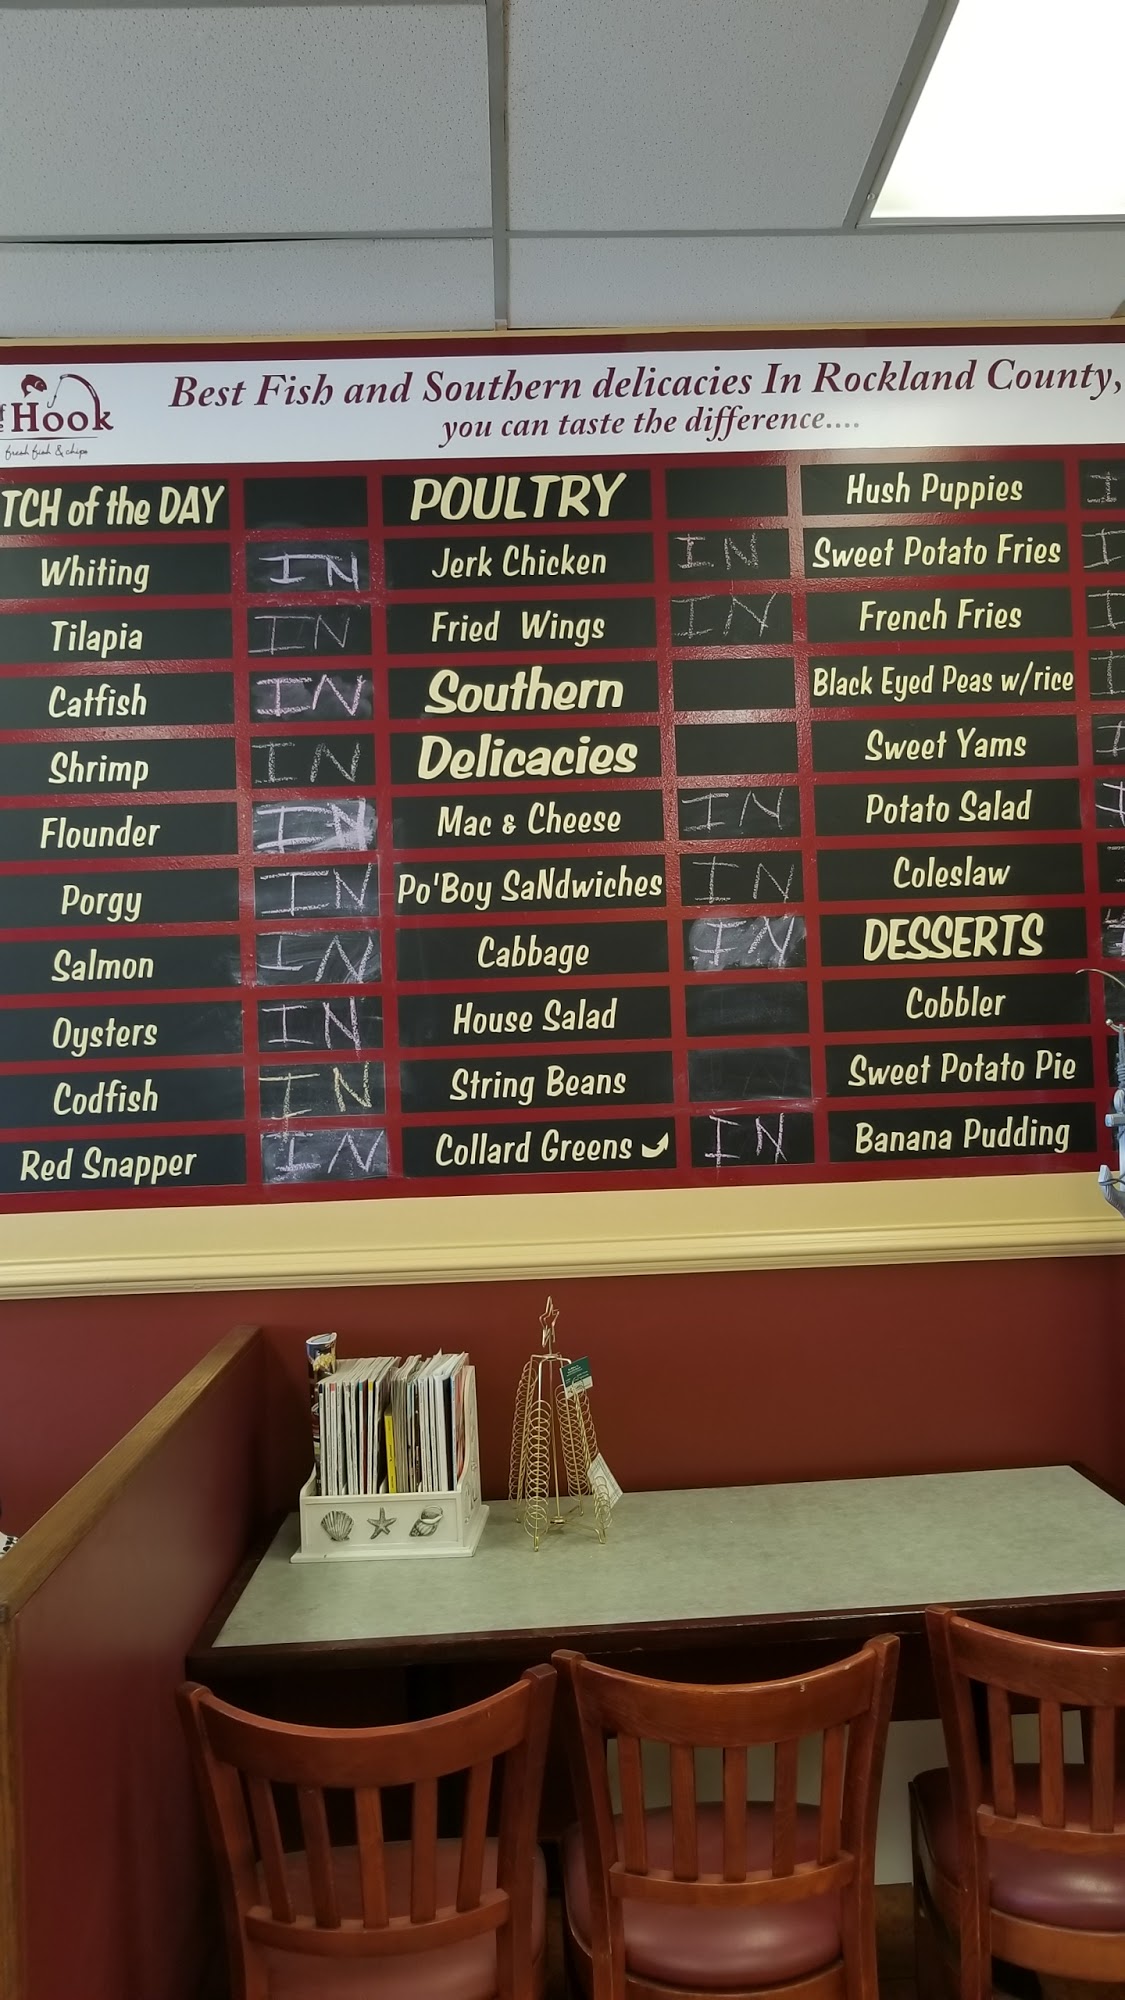 Hook
fresh fish & chips
Best Fish and Southern delicacies In Rockland County,
you can taste the difference....
TCH of the DAY
Whiting IN
Tilapia IN
Catfish IN
Shrimp IN
Flounder IN
Porgy IN
Salmon IN
Oysters IN
Codfish IN
Red Snapper IN
POULTRY
Jerk Chicken IN
Fried Wings IN
Southern
Delicacies
Mac & Cheese IN
Po'Boy SaNdwiches IN
Cabbage IN
House Salad
String Beans
Collard Greens IN
Hush Puppies
Sweet Potato Fries
French Fries
Black Eyed Peas w/rice
Sweet Yams
Potato Salad
Coleslaw
DESSERTS
Cobbler
Sweet Potato Pie
Banana Pudding